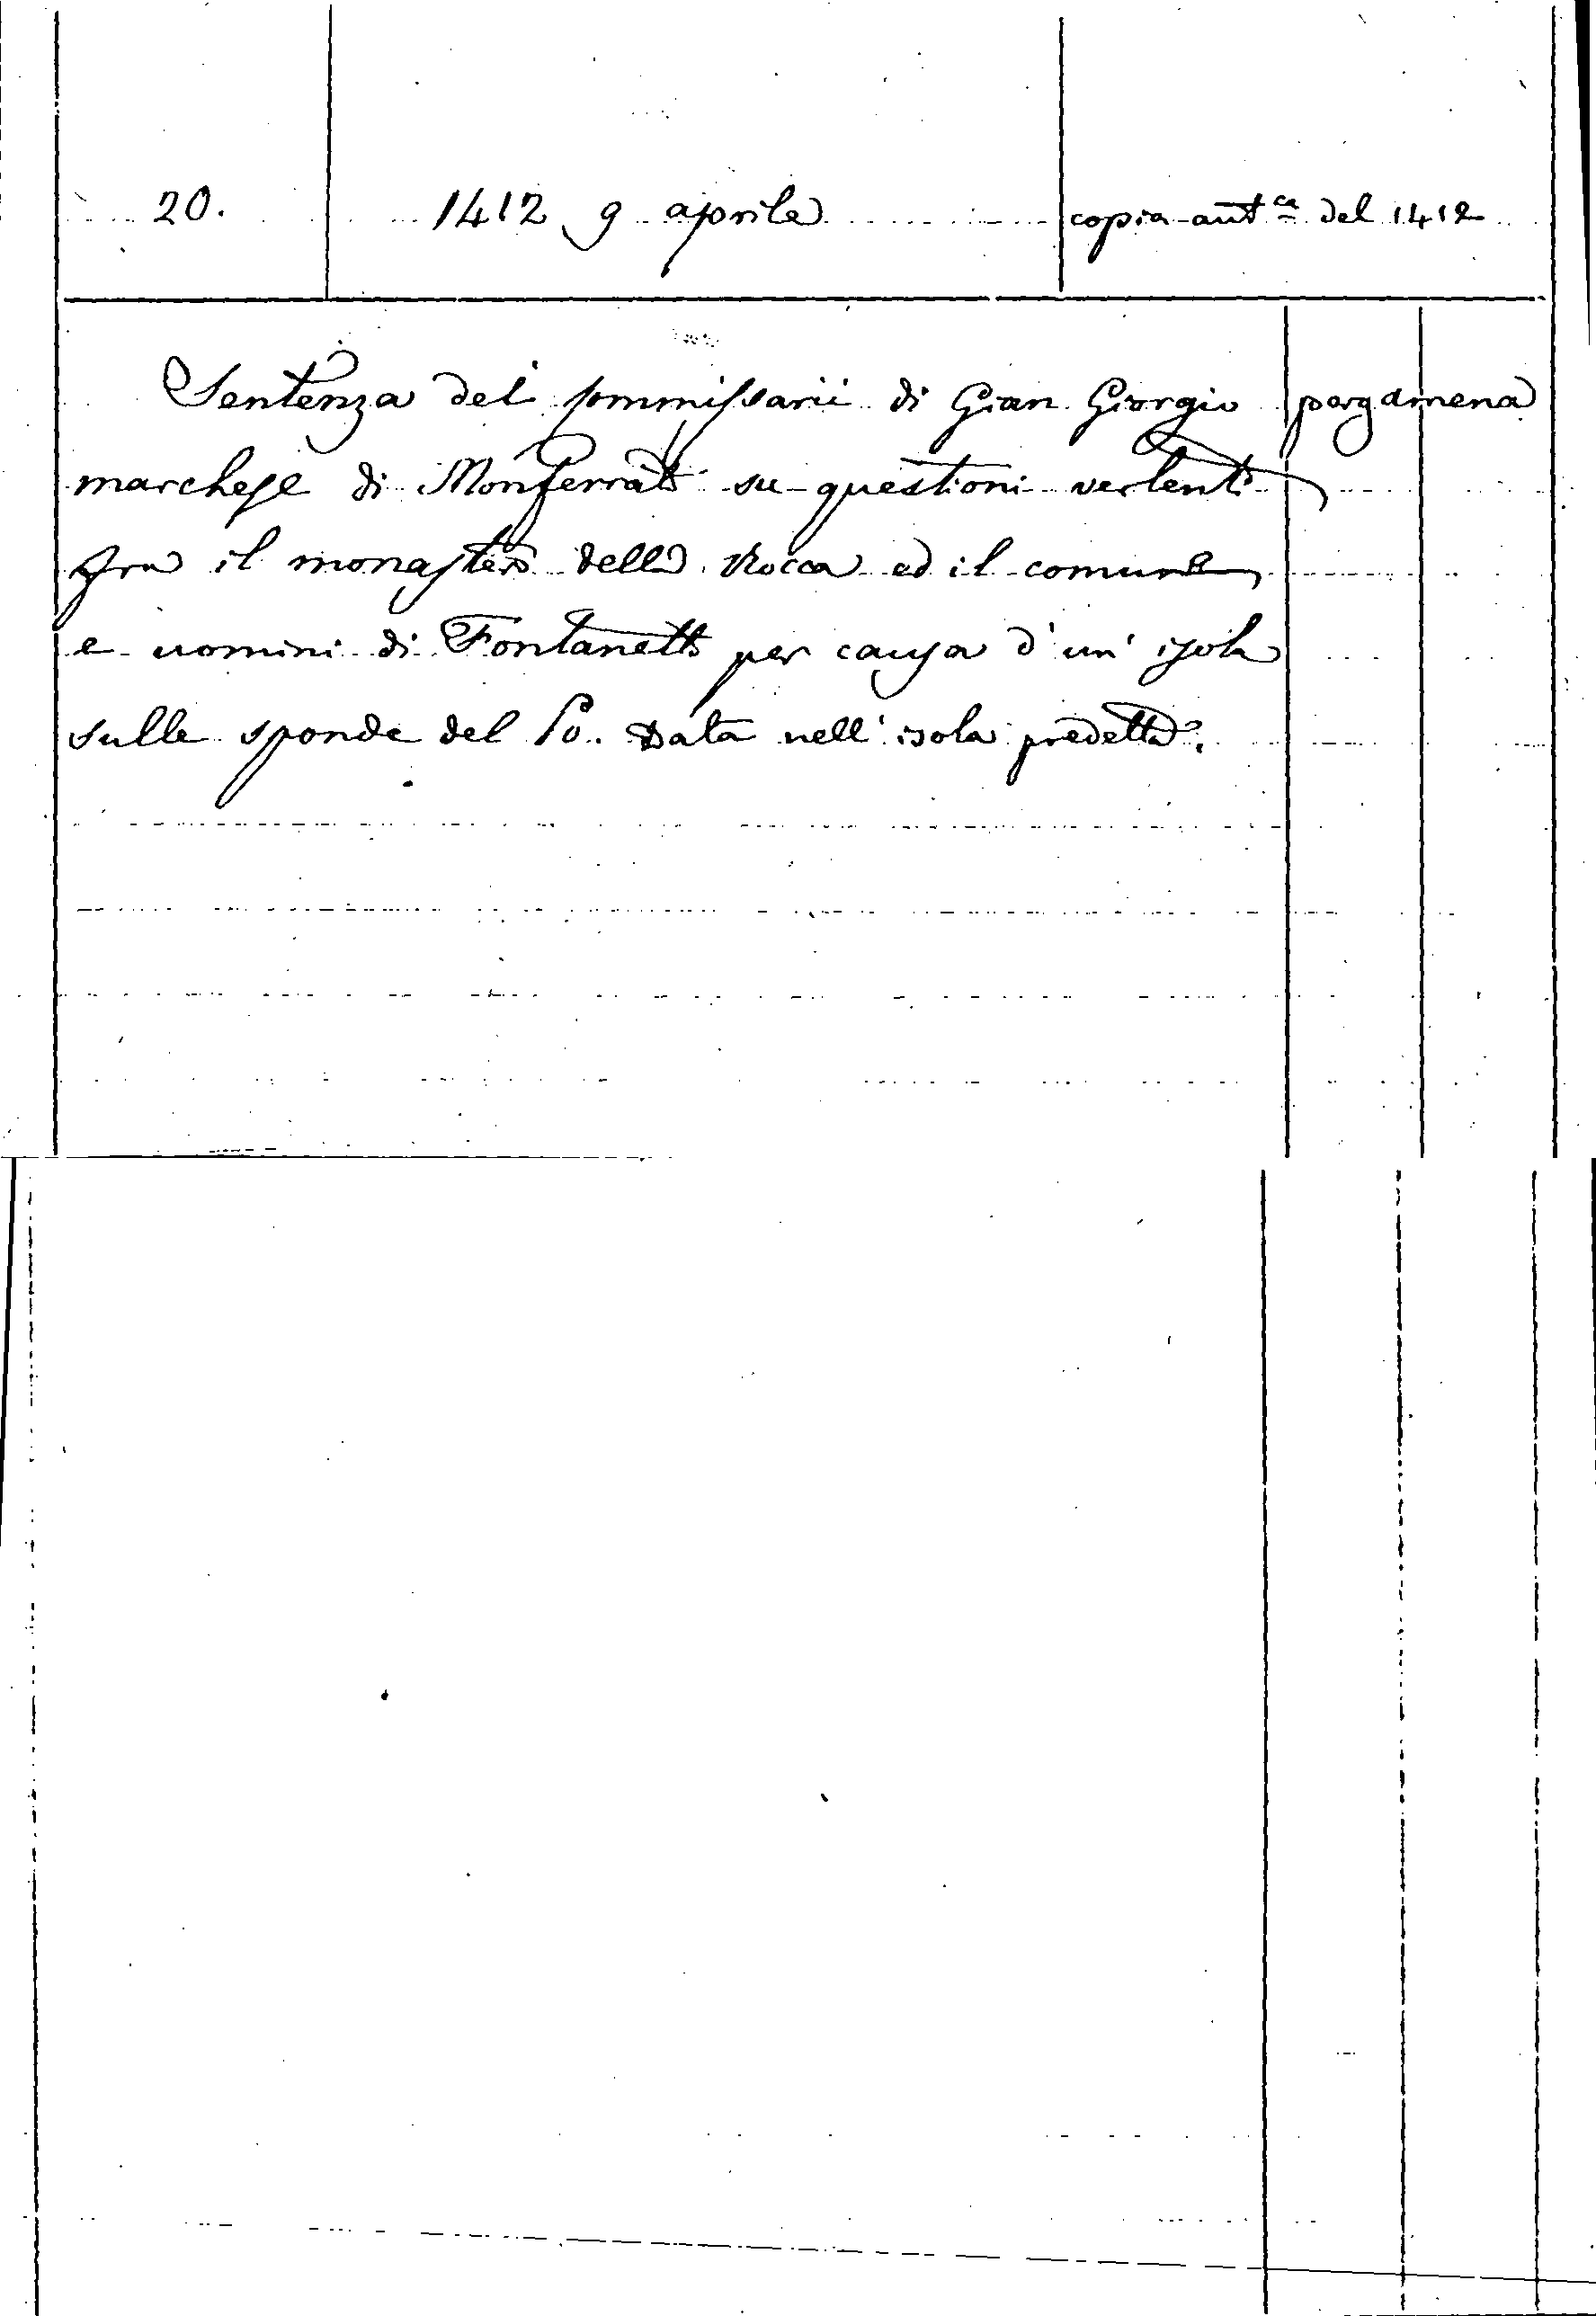 20. 1412 9 aprile copia aut.ca del 1412
Sentenza dei commissarii di Gian Giorgio pergamena
marchese di Monferrato su questioni vertenti
fra il monastero della Rocca ed il comune
e uomini di Fontanetto per causa d'un' isola
sulle sponde del Po. Data nell' isola predetta.